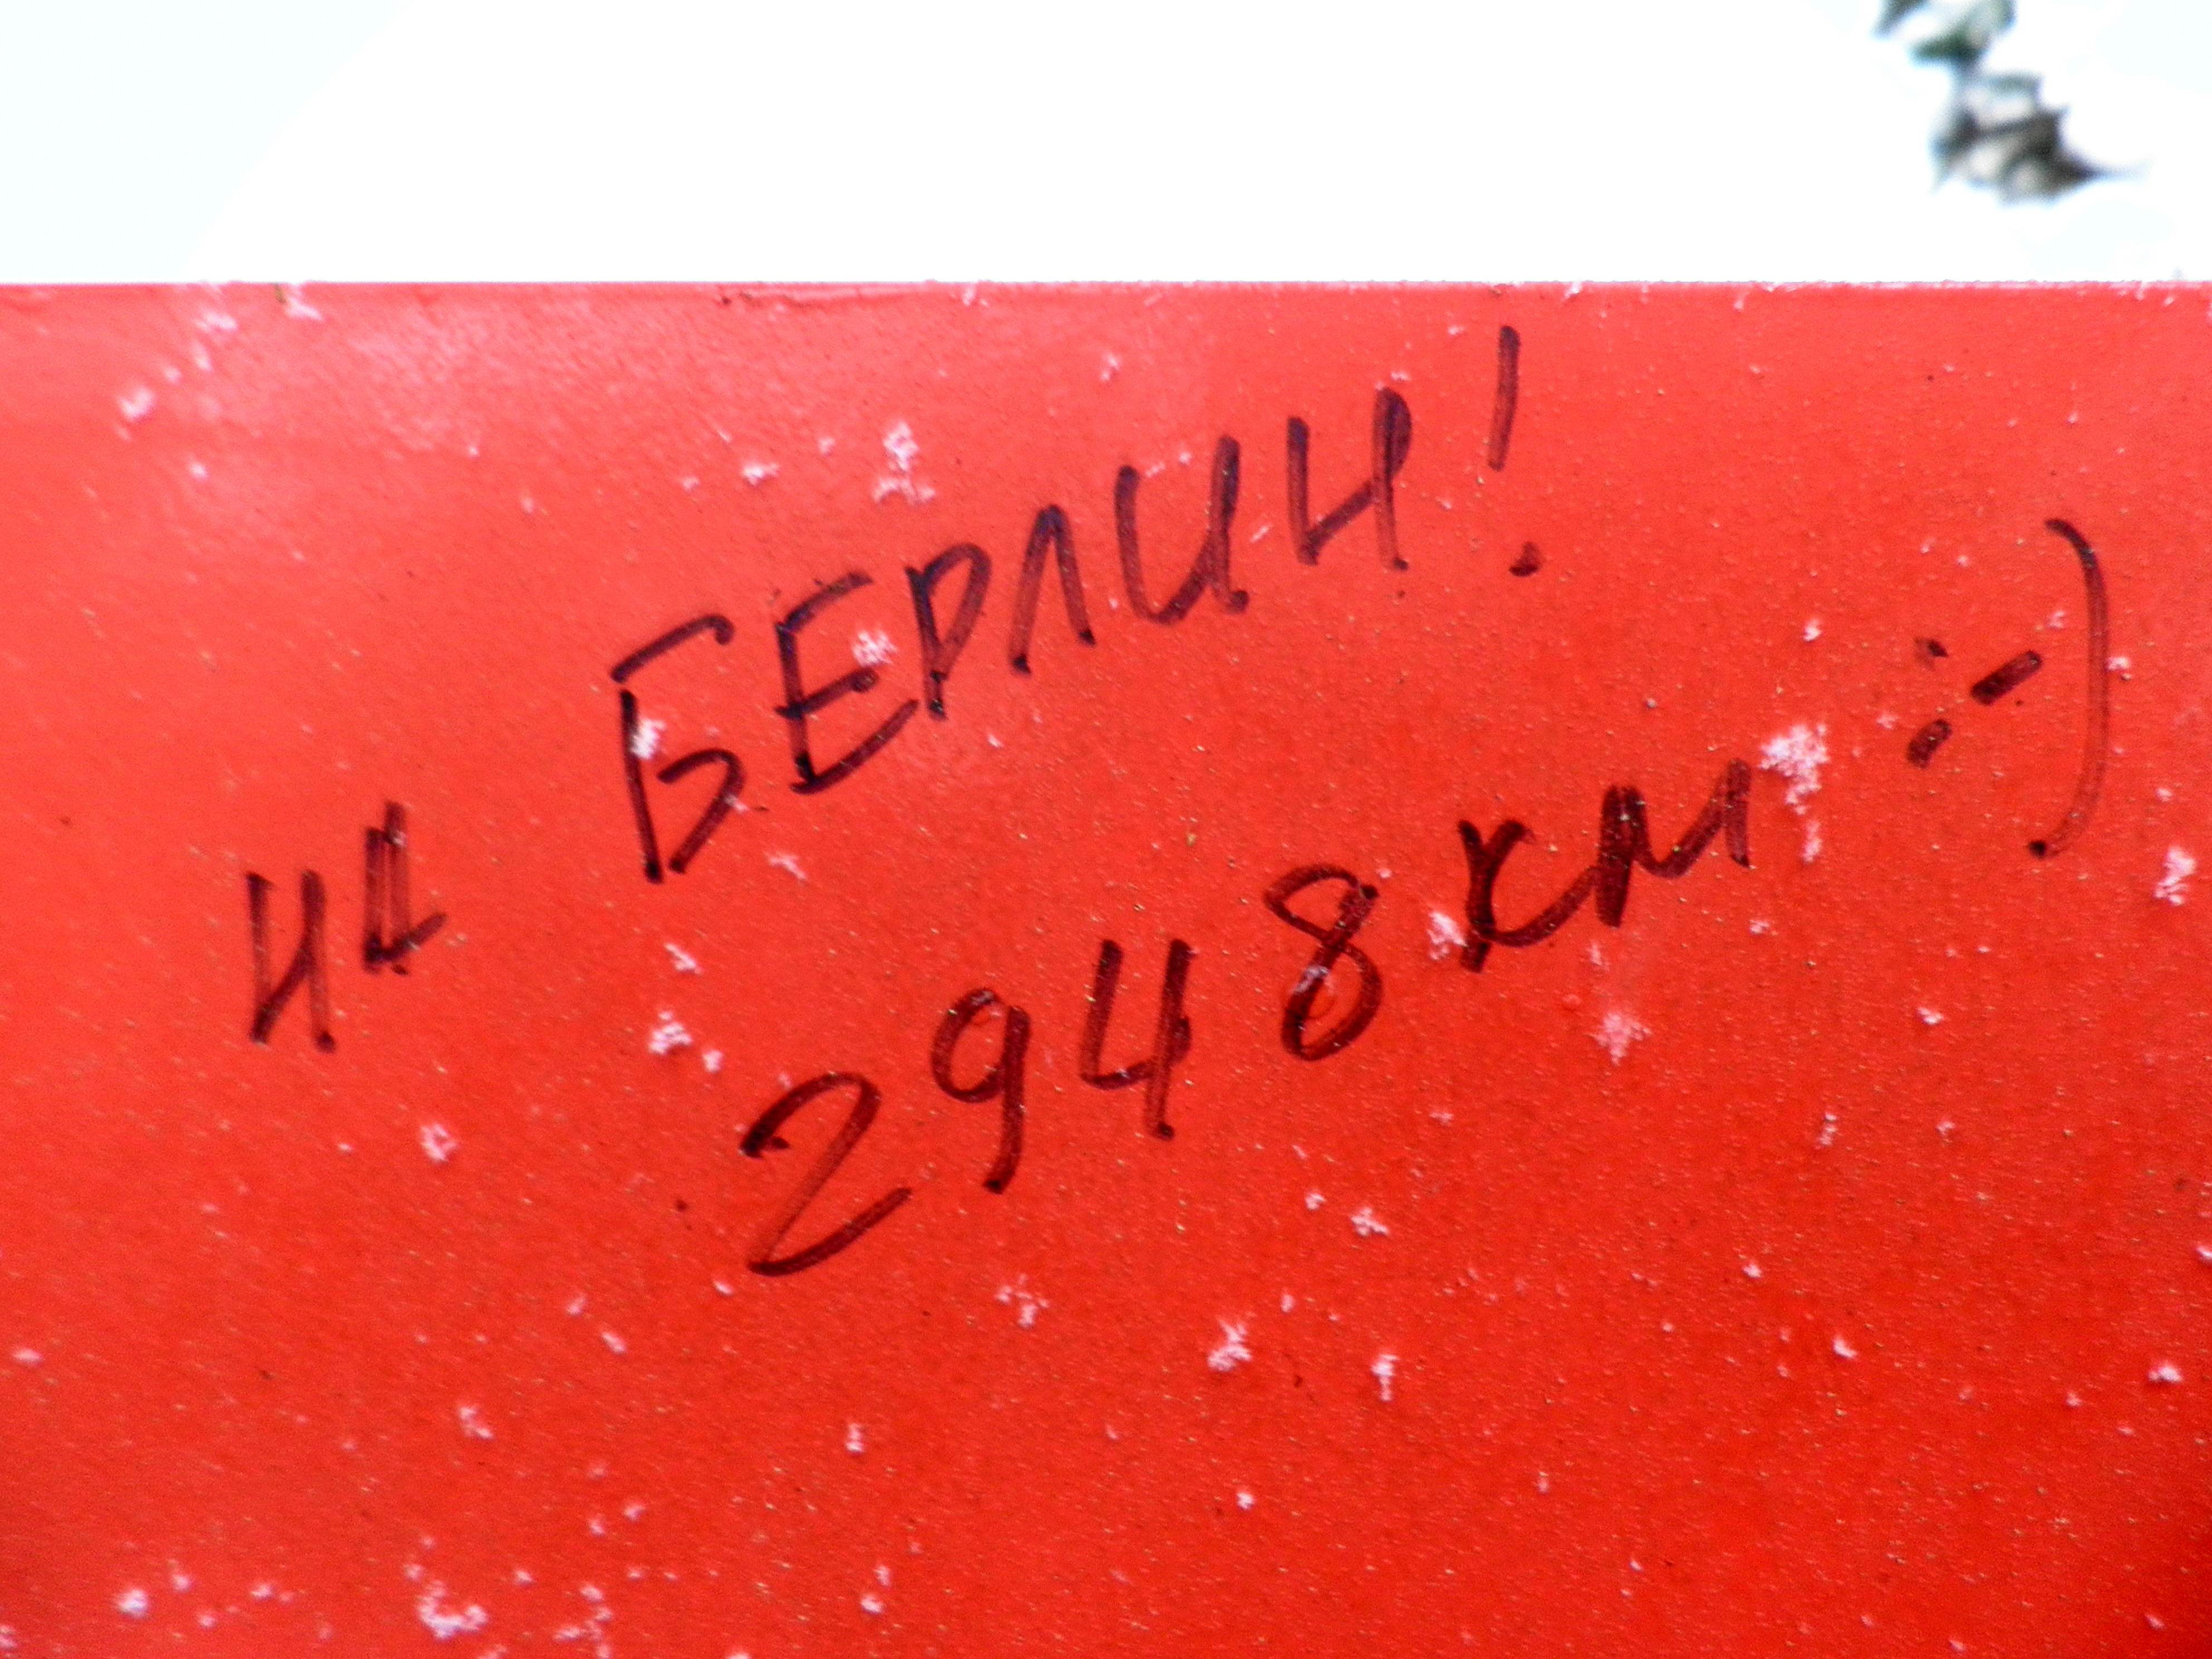 НА БЕРЛИН!
2948 км :-)